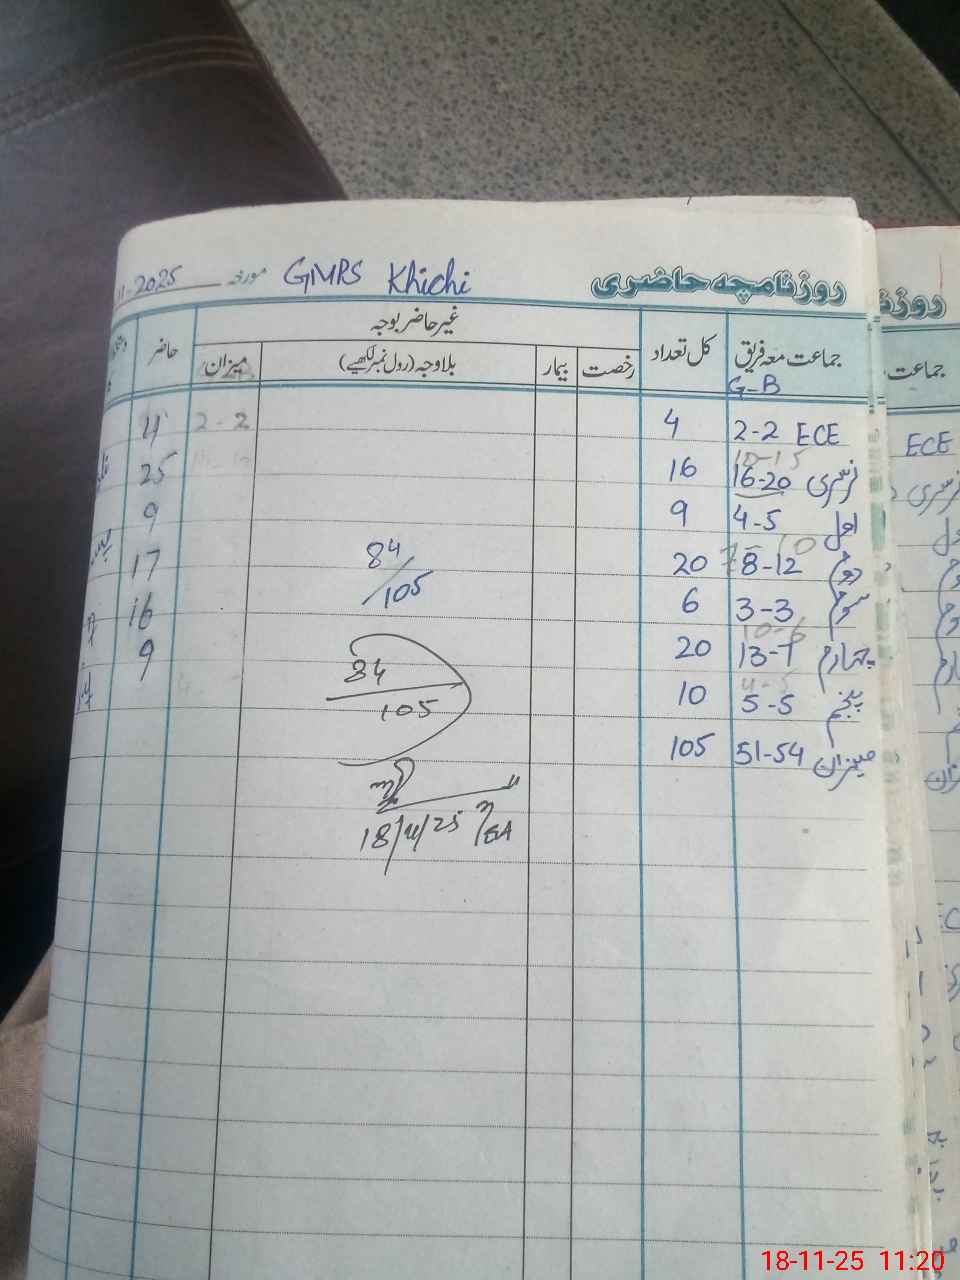 روزنامچہ حاضری GMPS Khichi مورخہ 11-2025
جماعت معہ فریق کل تعداد غیر حاضر بوجہ حاضر
G-B رخصت بیمار بلاوجہ (رول نمبر لکھیے) میزان
ECE 2-2 4 2-2 4
10-15
نرسری 16-20 16 25
اول 4-5 9 9
دوم 8-12 20 17
سوم 3-3 6 16
10-6
چہارم 13-7 20 9
4-5
پنجم 5-5 10
میزان 51-54 105
84/105
84
105
18/11/25
روزنامچہ
جماعت
ECE
نرسری
اول
18-11-25 11:20